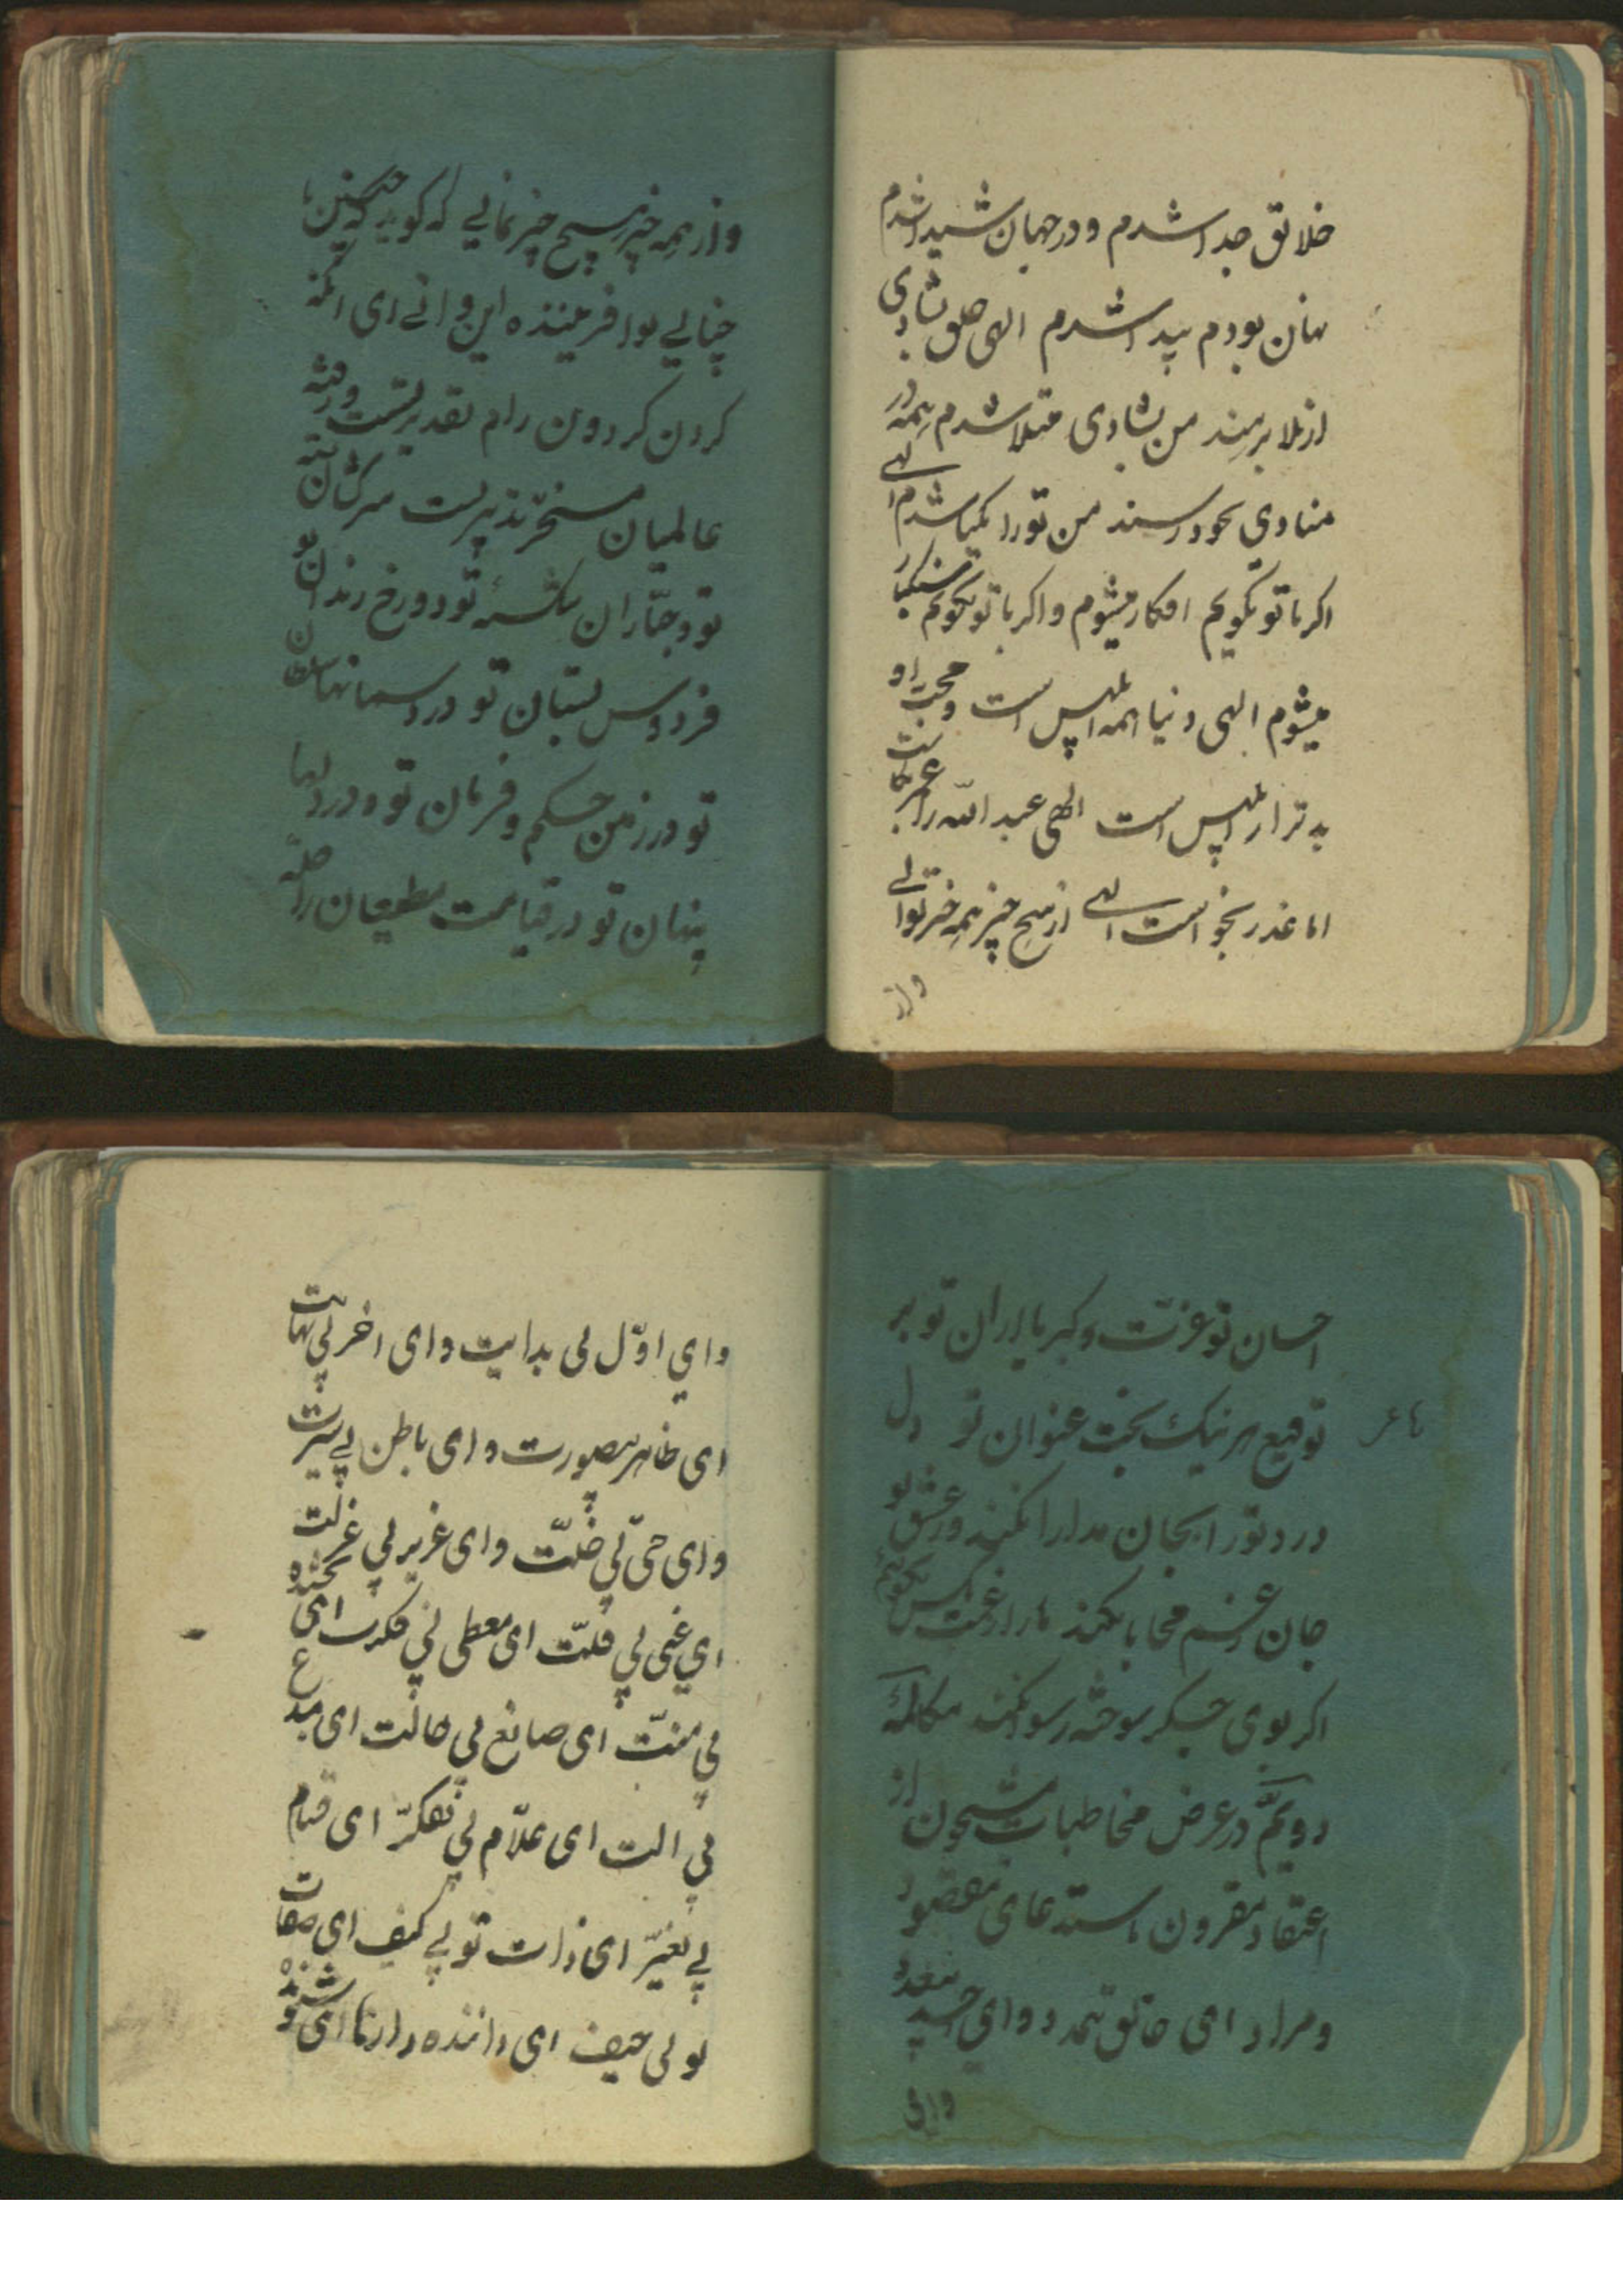 خلائق جدا شدم و در جهان شیدا شدم
نهان بودم پیدا شدم الهی خلق بشادی
از بلا برهند من بشادی مبتلا شدم همه از
منادی بخود رسند من تو را کمیا شدم الهی
اکر با تو بگویم افکار میشوم و اکر با تو نگویم سنگسار
میشوم الهی دنیا همه ابلیس است و محبت او
بدتر از ابلیس است الهی عبد الله را عمر بکاست
اما عذر نخواست الهی از هیچ چیز همه چیز توانی
و از
و از همه چیز هیچ چیز نمایی که کوید که چنین یا
چنانی بو افریننده این و انی ای انکه
کردن کردون رام تقدیر تست و رقبه
عالمیان مسخر تدبیر تست سرکشان بسته
تو و جباران شکسته تو دوزخ زندان تو
فردوس بستان تو در اسمانها سلطان
تو در زمین حکم و فرمان تو و در دلها
پنهان تو در قیامت مطیعان را صله
احسان تو عزت و کبریا ایران تو بر
توقیع هر نیک بخت عنوان تو دل
ما عر
درد تو را بجان مدارا نکند در عشق تو
جان غم محابا نکند ما را غمت بکس نکویم
اکر بوی جکر سوخته رسوا نکند مکالمه
دویم در عرض مخاطبات مشحون از
اعتقاد مقرون باستدعای مقصود
و مراد ای خالق بیمدد و وای احد بیعدد
وای
و ای اول بی بدایت و ای اخر بی نهایت
ای ظاهر بیصورت و ای باطن بی سیرت
و ای حی بی ضلت و ای عزیز بی عزلت
ای غنی بی قلت ای معطی بی فکرت ای بخشنده
بی منت ای صانع بی حالت ای مبدع
بی الت ای علام بی تفکر ای قیام
بی تغیر ای ذات تو بی کیف ای صفات
تو بی حیف ای داننده رازها ای شنونده